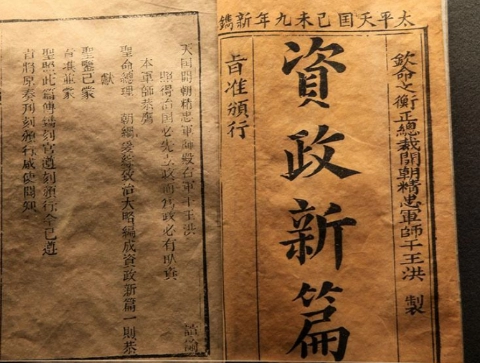 太平天囯己未九年新鐫
欽命文衡正總裁開朝精忠軍師干王洪 製
資政新篇
旨准頒行
天囯開朝精忠軍師殿右軍干王洪
諠諭
照得治囯必先立政而為政必有取資
本軍師恭膺
聖命總理 朝綱爰綜致治大略編成資政新篇一則恭
獻
聖鑒已蒙
旨准並蒙
聖照此篇傳鐫刻官遵刻頒行今已遵
旨將原奏刊刻頒行咸使聞知